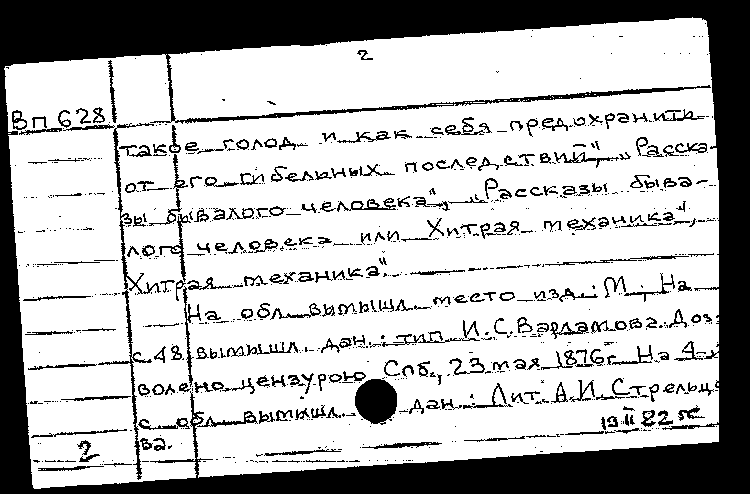 2
Вп 628
такое голод и как себя предохранить
от его гибельных последствий", „Расска-
зы бывалого человека", „Рассказы быва-
лого человека или Хитрая механика",
Хитрая механика".
На обл. вымышл. место изд.: М. На
с. 48 вымышл. дан.: тип. И.С. Варламова. Доз-
волено цензурою Спб., 23 мая 1876 г. На 4-й
с. обл. вымышл. дан.: Лит. А.И. Стрельцо
ва.
2
19 II 82